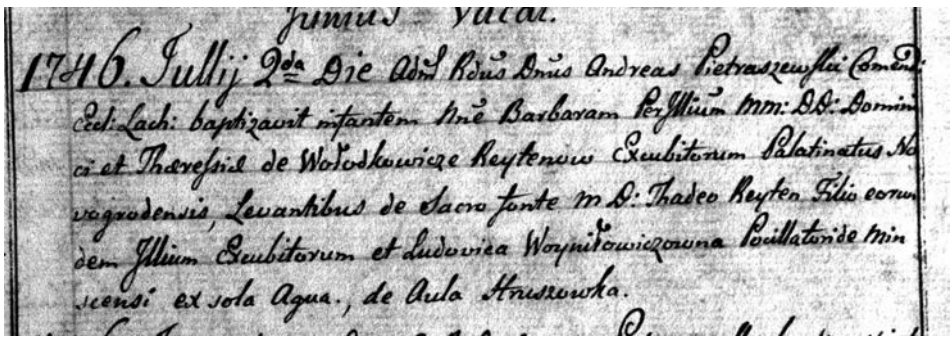 Junius Vacat.
1746. Jullij 2da Die Adm̃ Rdus Dnus Andreas Pietraszewski Comend:
Eccl: Lach: baptizavit infantem Nnẽ Barbaram PerJllium MM: DD: Domini
ci et Thæressiæ de Wołodkowicze Reytenow Excubitorum Palatinatus No
vogrodensis, Levantibus de Sacro fonte M D: Thadeo Reyten Filio eorun
dem Jllium Excubitorum et Ludovica Woyniłowiczowna Pocillatoride Min
scensi ex sola Aqua., de Aula Hruszowka.